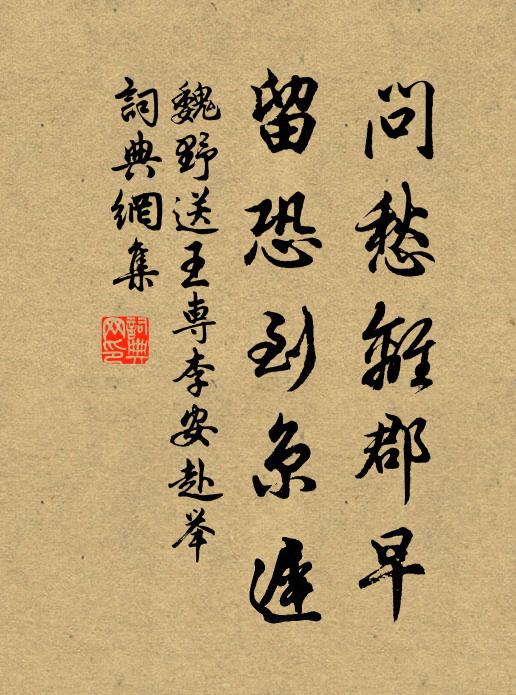 問愁離郡早
留恐到京遲
魏野送王專李安赴举
詞典網集
詞典网印